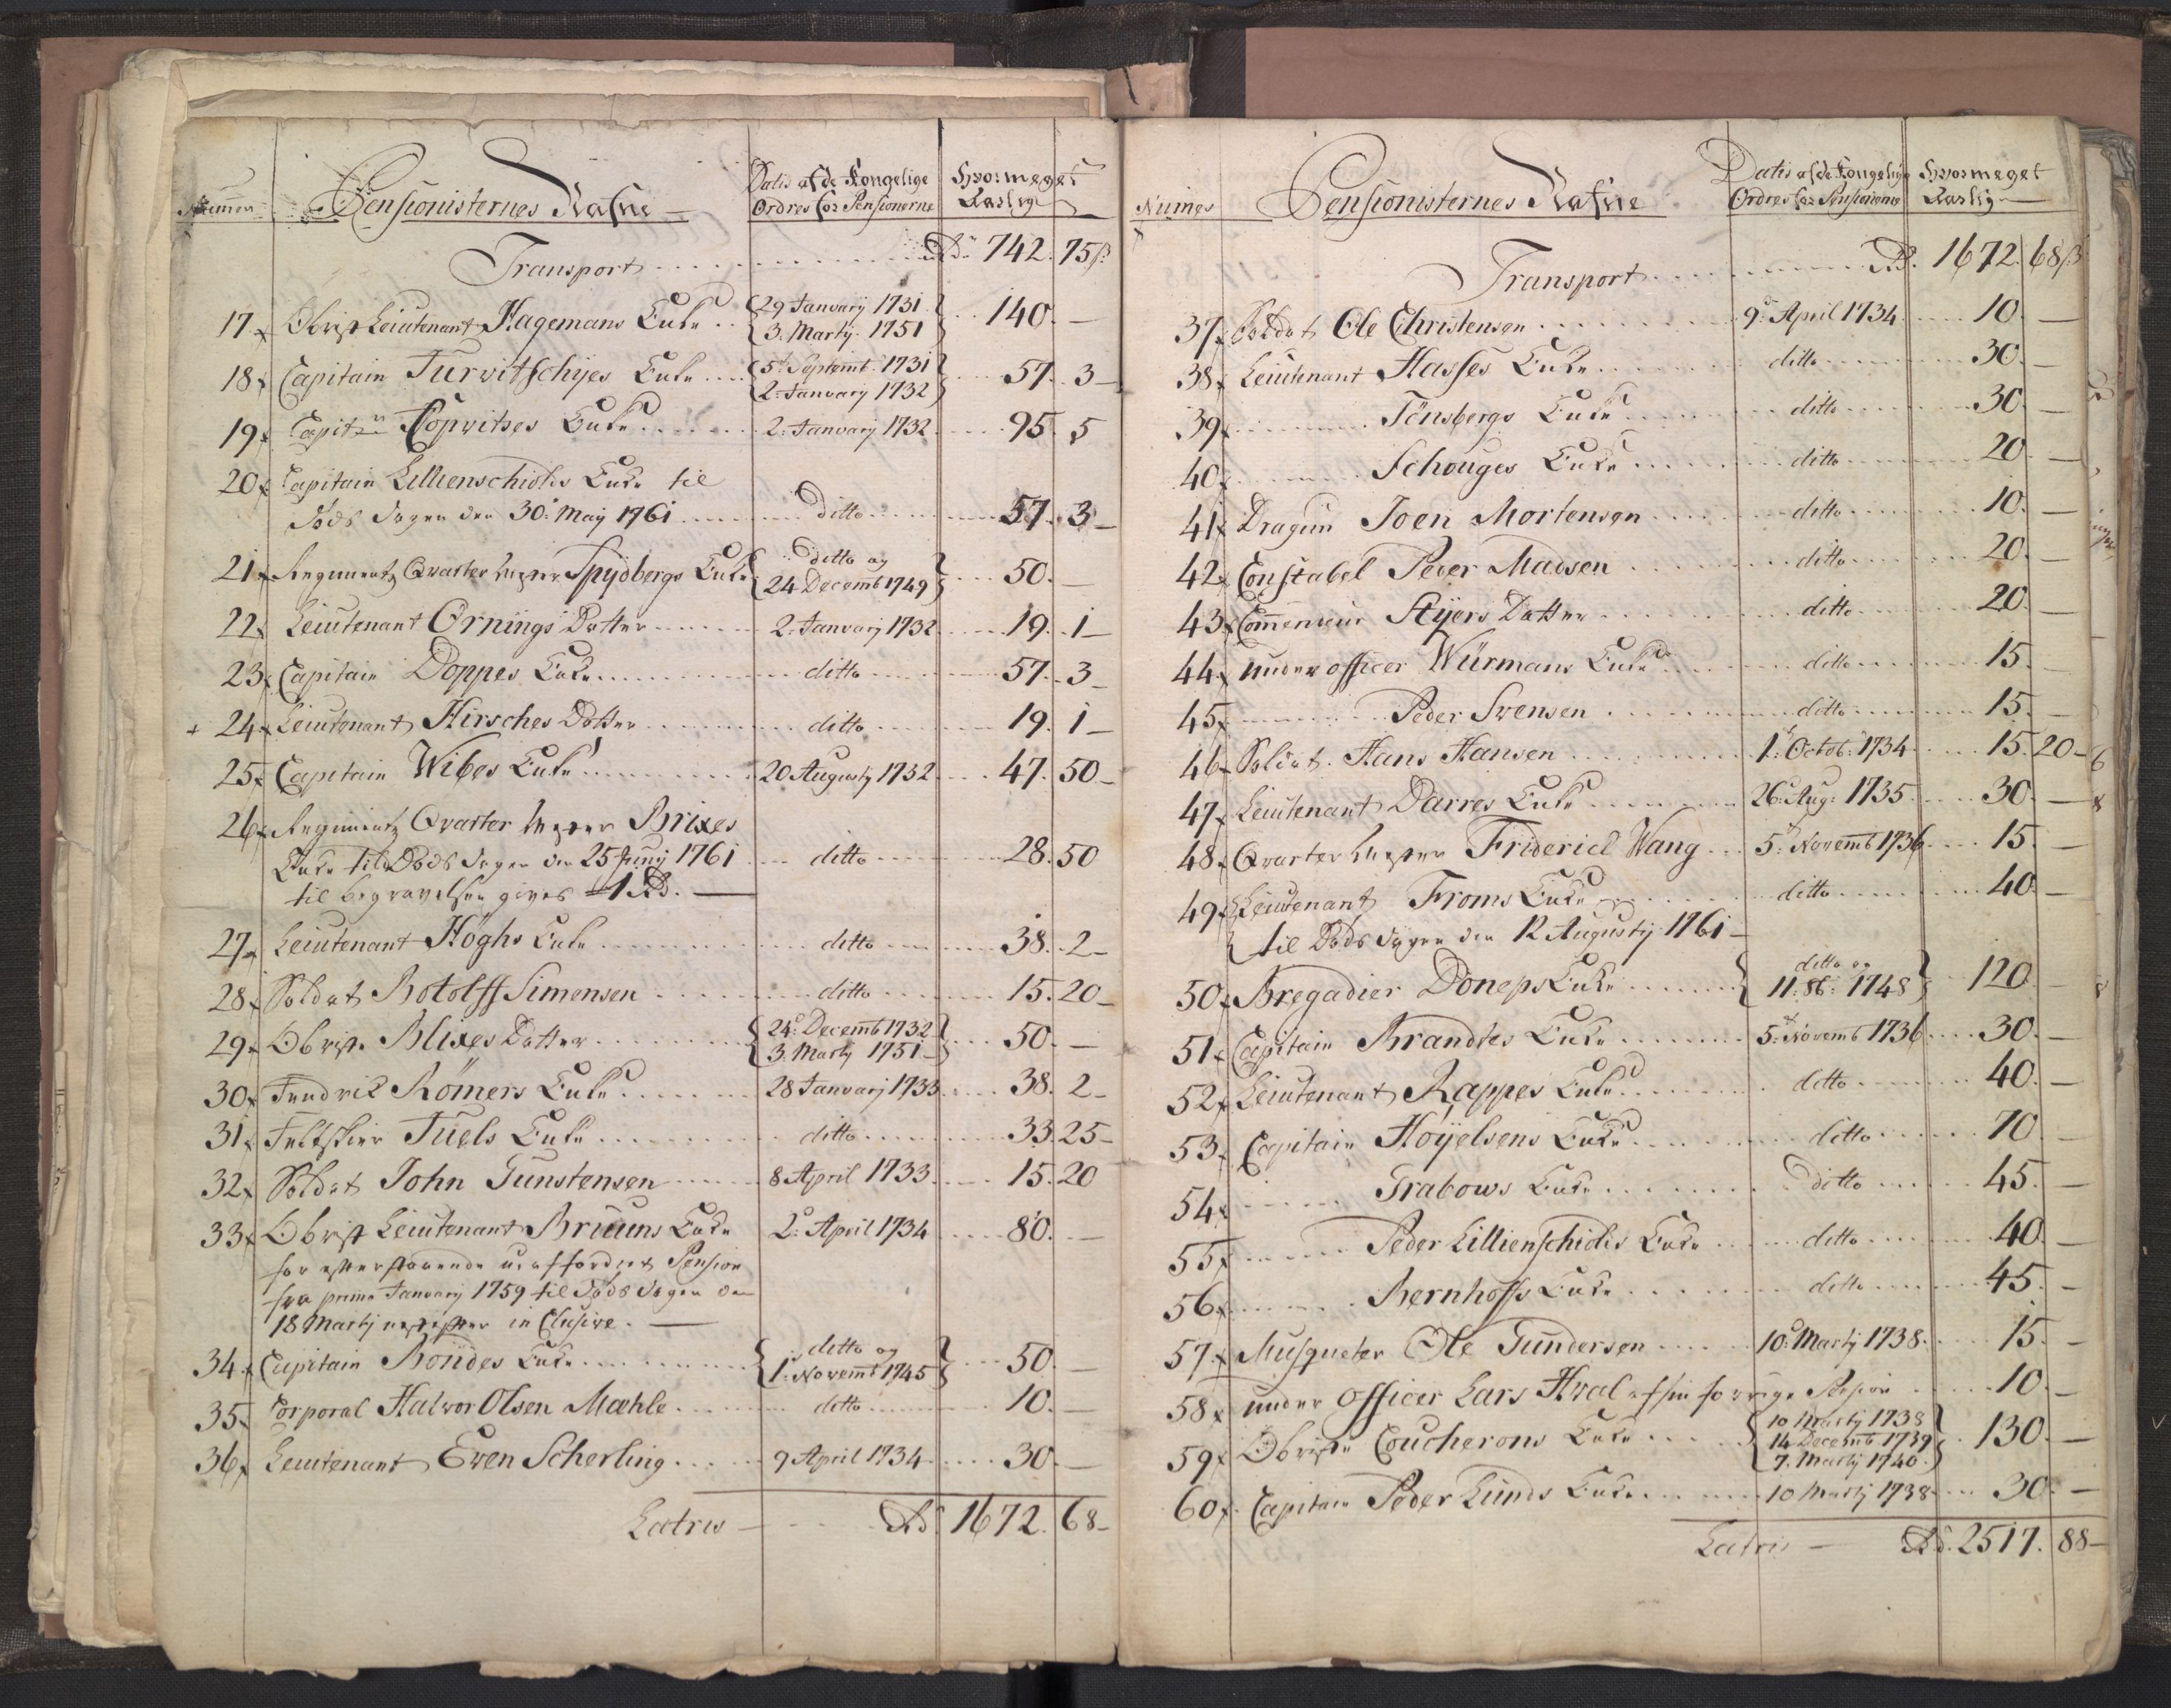 Numer Pensionisternes Nafne Datis af de Kongelige Hvormeget
Ordres for Pensionerne Aarlig
Transport Rd. 742. 75 ß
17 Obrist Leiutenant Hagemans Enke 29 Januarij 1731 140. —
3. Martij 1751
18 Capitain Turvitschijes Enke 5t Septembr 1731 57. 3
2. Januarij 1732
19 Capitn Copvitses Enke 2. Januarij 1732 95. 5
20 Capitain Lillienschiolds Enke til
døds dagen den 30. Maij 1761 ditto 57. 3
21 Regiments Qvarter Mester Spydbergs Enke ditto og 50. —
24 Decemb 1749
22 Leiutenant Ornings Datter 2. Januarij 1732 19. 1
23 Capitain Doppes Enke ditto 57. 3
+ 24 Leiutenant Hirsches Datter ditto 19. 1
25 Capitain Wibes Enke 20 Augustij 1732 47. 50
26 Regiments Qvarter Mester Brixes
Enke til Døds dagen den 25 Junij 1761 ditto 28. 50
til begravelsen gives 1 Rd.
27 Leiutenant Höghs Enke ditto 38. 2
28 Soldat Botolff Simensen ditto 15. 20
29 Obriste Blixes Datter 24. Decemb 1732 50. —
3. Martij 1751
30 Fendrik Römers Enke 28 Januarij 1733 38. 2
31 Feltskier Tuels Enke ditto 33. 25
32 Soldat John Gunstensen 8 April 1733 15. 20
33 Obrist Leiutenant Bruuns Enke 2. April 1734 80. —
for efterstaaende uaffordret Pension
fra primo Januarij 1759 til døds dagen den
18 Martij næstefter inClusive.
34 Capitain Böndes Enke ditto og 50. —
1. Novemb 1745
35 Corporal Halvor Olsen Mæhle ditto 10. —
36 Leiutenant Even Scherling 9 April 1734 30. —
Latris Rd. 1672. 68
Numer Pensionisternes Nafne Datis af de Kongelige Hvormeget
Ordres for Pensionerne Aarlig
Transport Rd. 1672. 68 ß
37 Soldat Ole Christensen 9. April 1734 10. —
38 Leiutenant Hasses Enke ditto 30. —
39 Tönsbergs Enke ditto 30. —
40 Schouges Enke ditto 20. —
41 Dragun Joen Mortensen ditto 10. —
42 Constabel Peder Madsen ditto 20. —
43 Commeneur Styers Datter ditto 20. —
44 under officer Würmans Enke ditto 15. —
45 Peder Svensen ditto 15. —
46 Soldat Hans Hansen 1t Octob: 1734 15. 20
47 Leiutenant Darres Enke 26. Aug: 1735 30. —
48 Qvarter Mester Friderick Wang 5. Novemb 1736 15. —
49 Leiutenant Froms Enke ditto 40. —
til Døds dagen den 12 Augustij 1761
50 Bregadier Doneps Enke ditto og 120 —
11. 8b: 1748
51 Capitain Brandtes Enke 5. Novemb 1736 30. —
52 Leiutenant Rappes Enke ditto 40. —
53 Capitain Höyelsens Enke ditto 70. —
54 Grabows Enke ditto 45. —
55 Peder Lillienschiolds Enke ditto 40. —
56 Bernhoffs Enke ditto 45. —
57 Musqueter Ole Gundersen 10. Martij 1738 15. —
58 under officer Lars Hval af sin forrige Pension 10. —
59 Obriste Coucherons Enke 10 Martij 1738 130. —
14 Decemb 1739
7. Martij 1740
60 Capitain Peder Lunds Enke 10 Martij 1738 30. —
Latris Rd. 2517. 88